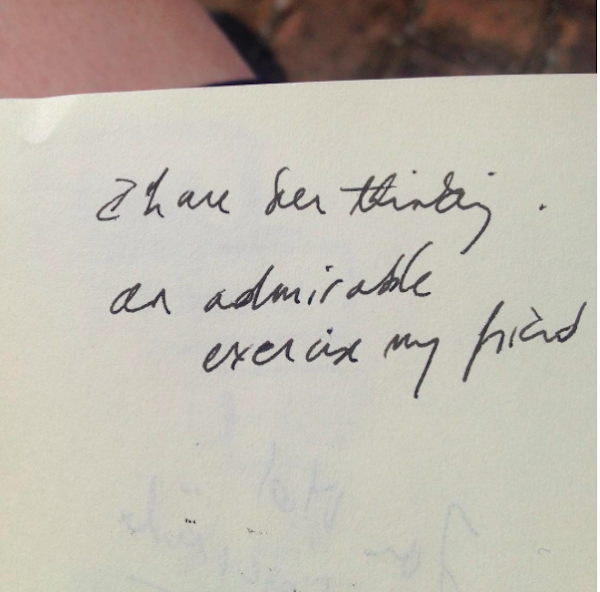 I have been thinking.
an admirable
exercise my friend